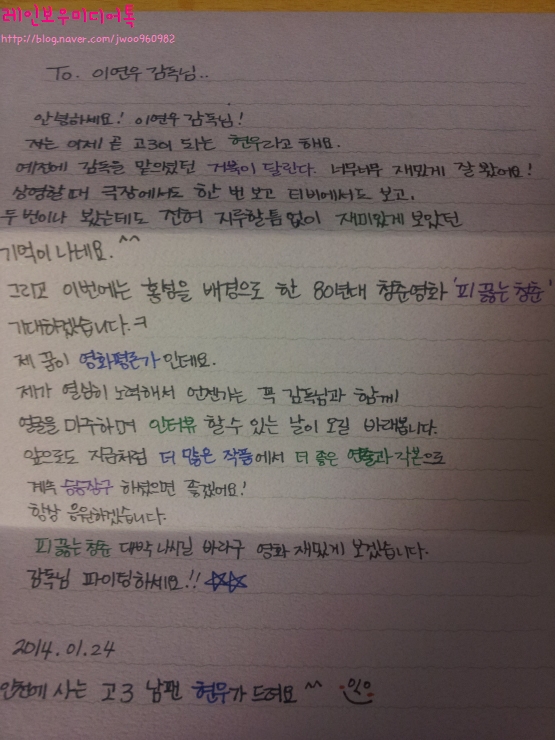 레인보우미디어톡
http://blog.naver.com/jwoo960982
To. 이연우 감독님..
안녕하세요! 이연우 감독님!
저는 이제 곧 고3이 되는 현우라고 해요.
예전에 감독을 맡으셨던 거북이 달린다. 너무너무 재밌게 잘 봤어요!
상영할 때 극장에서도 한 번 보고 티비에서도 보고,
두 번이나 봤는데도 전혀 지루할틈없이 재미있게 보았던
기억이 나네요. ^^
그리고 이번에는 홍성을 배경으로 한 80년대 청춘영화 '피 끓는 청춘'
기대하겠습니다.ㅋ
제 꿈이 영화평론가인데요.
제가 열심히 노력해서 언젠가는 꼭 감독님과 함께
얼굴을 마주하며 인터뷰 할 수 있는 날이 오길 바래봅니다.
앞으로도 지금처럼 더 많은 작품에서 더 좋은 연출과 각본으로
계속 승승장구 하셨으면 좋겠어요!
항상 응원하겠습니다.
피 끓는 청춘 대박 나시길 바라구 영화 재밌게 보겠습니다.
감독님 파이팅하세요!! ☆☆
2014.01.24
인천에 사는 고3 남팬 현우가 드려요 ^^